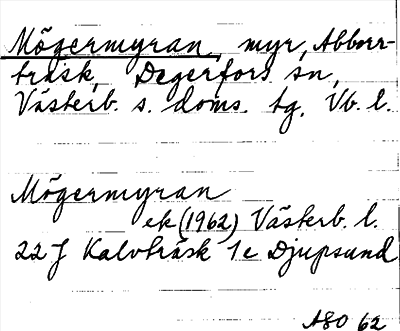 Mögermyran, myr, Abborr-
träsk, Degerfors sn,
Västerb. s. doms. tg. Vb. l.
Mögermyran
ek (1962) Västerb. l.
22 J Kalvträsk 1c Djupsund
ASO 62